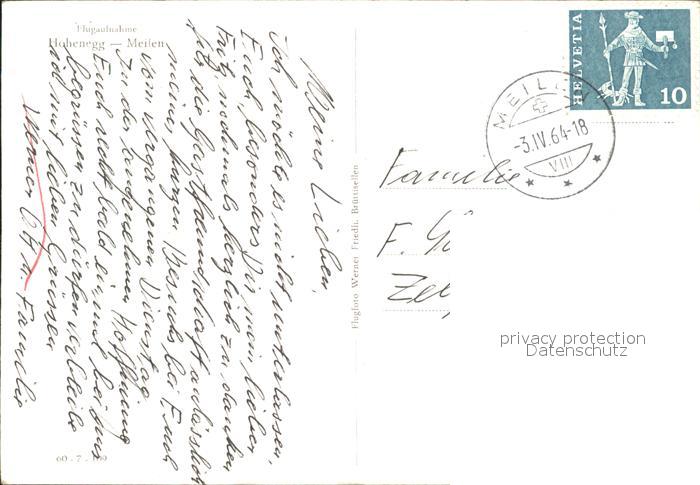 Flugaufnahme
Hohenegg — Meilen
Meine Lieben,
Ich möchte es nicht unterlassen,
Euch, besonders Dir mein lieber
Fritz, nochmals herzlich zu danken
für die Gastfreundschaft anlässlich
meines kurzen Besuchs bei Euch
vom vergangenen Dienstag.
In der angenehmen Hoffnung
Euch recht bald einmal bei uns
begrüssen zu dürfen verbleibe
ich mit lieben Grüssen
Werner u. Familie
60 - 7 - 
Flugfoto Werner Friedli, Brüttisellen
HELVETIA
10
MEIL
-3.IV.64-18
VIII
Familie
F. 
Ze
privacy protection
Datenschutz